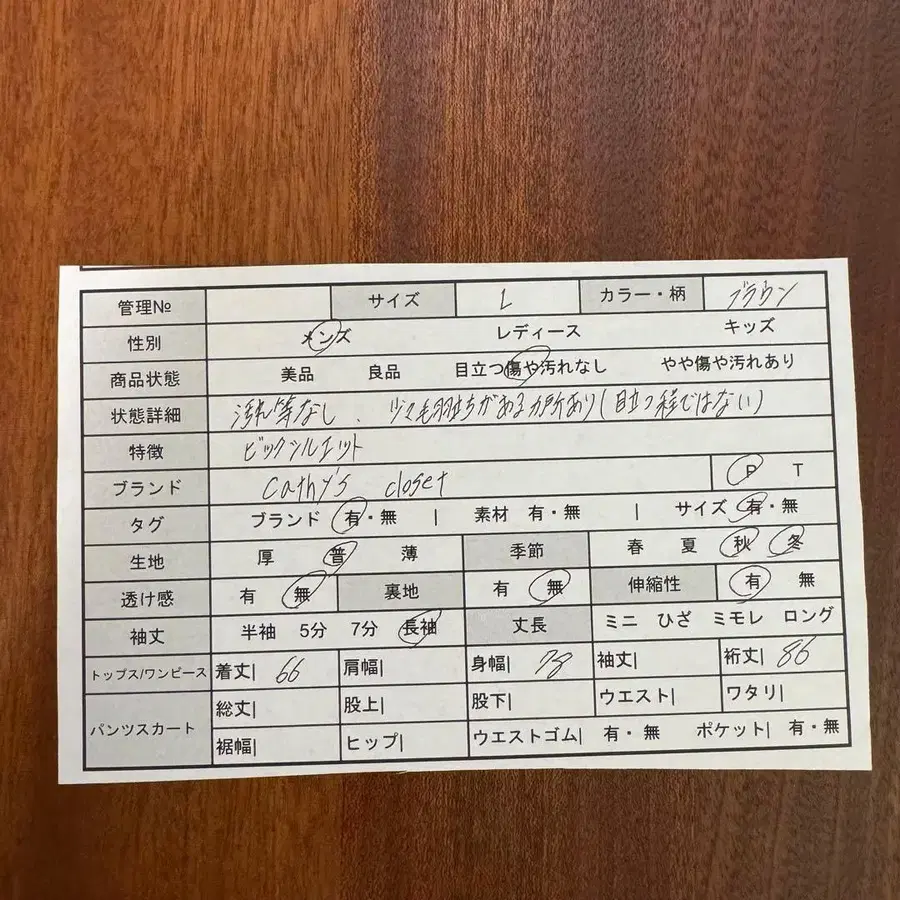 管理№ サイズ L カラー・柄 ブラウン
性別 メンズ レディース キッズ
商品状態 美品 良品 目立つ傷や汚れなし やや傷や汚れあり
状態詳細 汚れ等なし、少々毛羽立ちがあるカ所あり(目立つ程ではない)
特徴 ビックシルエット
ブランド cathy's closet P T
タグ ブランド 有・無 | 素材 有・無 | サイズ 有・無
生地 厚 普 薄 季節 春 夏 秋 冬
透け感 有 無 裏地 有 無 伸縮性 有 無
袖丈 半袖 5分 7分 長袖 丈長 ミニ ひざ ミモレ ロング
トップス/ワンピース 着丈| 66 肩幅| 身幅| 78 袖丈| 裄丈| 86
パンツスカート 総丈| 股上| 股下| ウエスト| ワタリ|
裾幅| ヒップ| ウエストゴム| 有・無 ポケット| 有・無